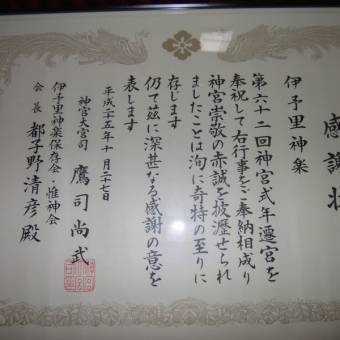 感謝状
伊予里神楽
第六十二回神宮式年遷宮を
奉祝して右行事をご奉納相成り
神宮崇敬の赤誠を披瀝せられ
ましたことは洵に奇特の至りに
存じます
仍て茲に深甚なる感謝の意を
表します
平成二十五年十月二十七日
神宮大宮司 鷹司尚武
伊予里神楽保存会・惟神会
会長 都子野清彦殿